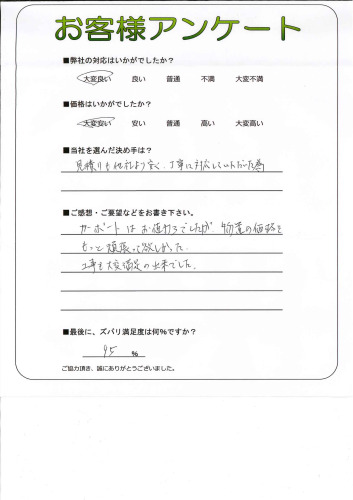 お客様アンケート
■弊社の対応はいかがでしたか?
大変良い 良い 普通 不満 大変不満
■価格はいかがでしたか?
大変安い 安い 普通 高い 大変高い
■当社を選んだ決め手は?
見積りも他社より安く、丁寧に対応していただいた為
■ご感想・ご要望などをお書き下さい。
カーポートはお値打ちでしたが、物置の価格を
もっと頑張って欲しかった。
工事も大変満足の出来でした。
■最後に、ズバリ満足度は何%ですか?
95 %
ご協力頂き、誠にありがとうございました。